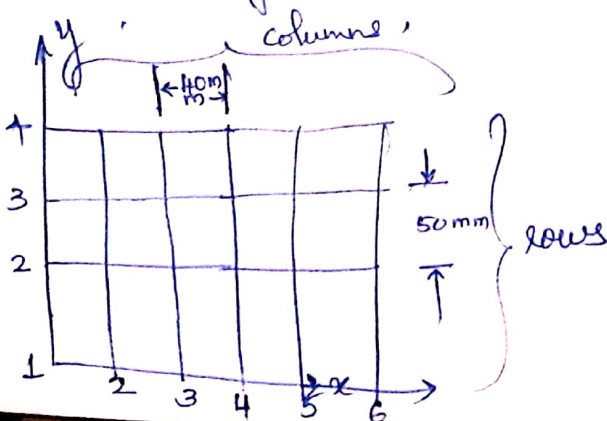 y
columns,
40m
m
4
3
50mm
rows
2
1
2
3
4
5
x
6